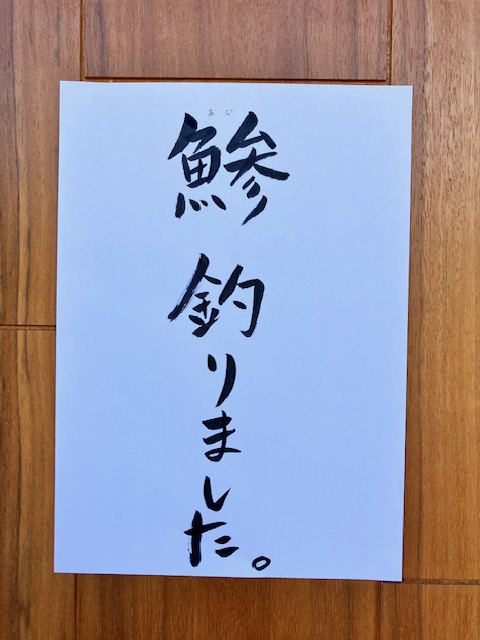 あじ
鯵釣りました。